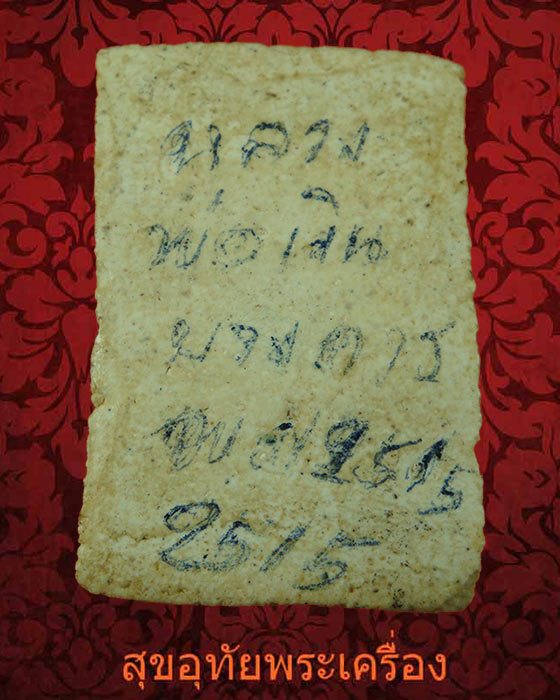 หลวง
พ่อเงิน
บางคาน
พศ2515
2515
สุขอุทัยพระเครื่อง